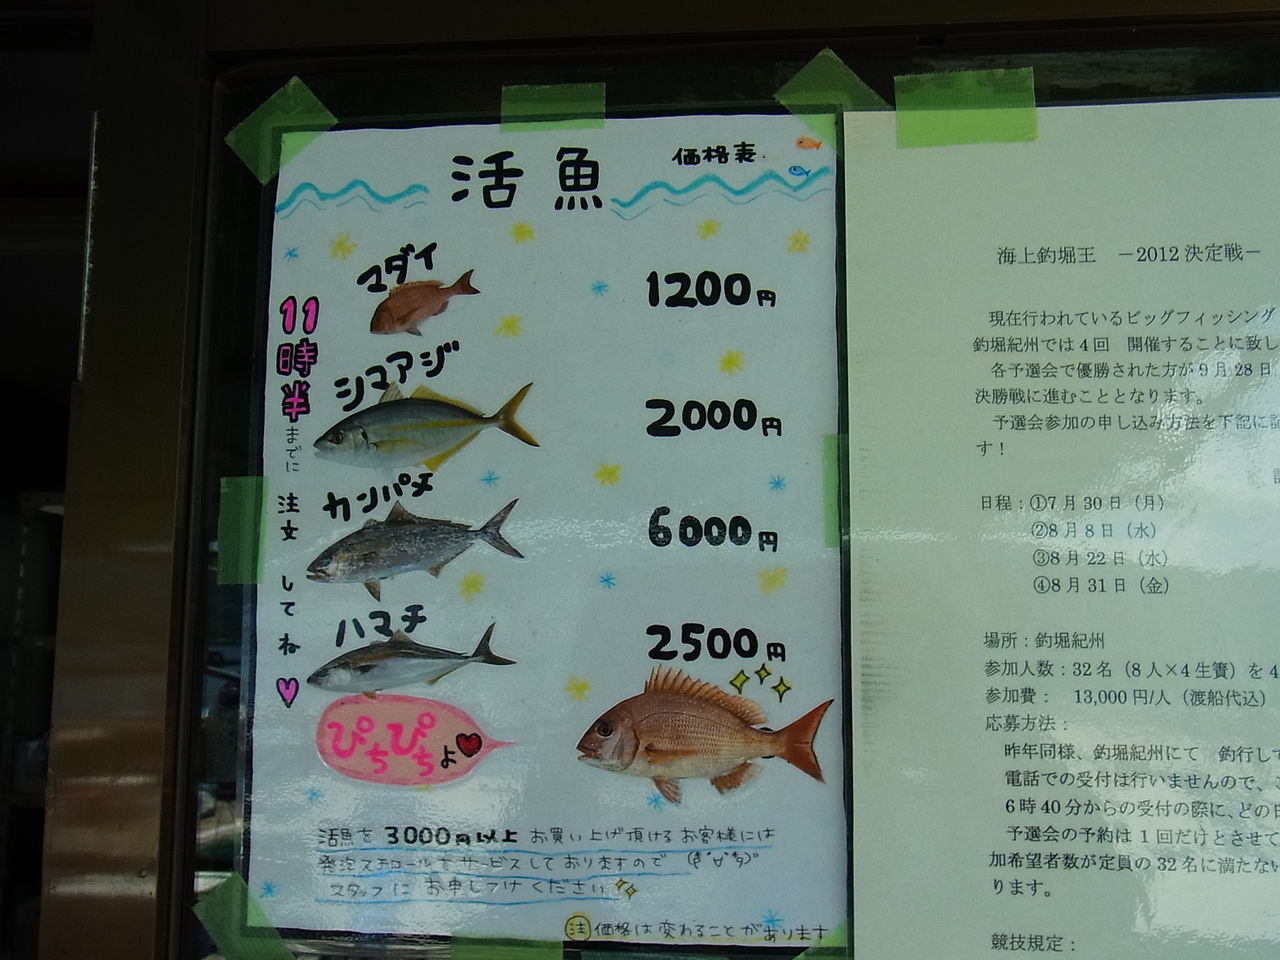 活魚 価格表
マダイ 1200円
シマアジ 2000円
カンパチ 6000円
ハマチ 2500円
11時半までに注文してね♡
ぴちぴちよ♥
活魚を3000円以上お買い上げ頂けるお客様には
発泡スチロールをサービスしておりますので
スタッフにお申しつけください
注 価格は変わることがあります
海上釣堀王 －2012決定戦－
現在行われているビッグフィッシング
釣堀紀州では4回 開催することに致し
各予選会で優勝された方が9月28日
決勝戦に進むこととなります。
予選会参加の申し込み方法を下記に記
す！
日程：①7月30日（月）
②8月8日（水）
③8月22日（水）
④8月31日（金）
場所：釣堀紀州
参加人数：32名（8人×4生簀）を4
参加費： 13,000円/人（渡船代込）
応募方法：
昨年同様、釣堀紀州にて 釣行して
電話での受付は行いませんので、
6時40分からの受付の際に、どの日
予選会の予約は1回だけとさせて
加希望者数が定員の32名に満たない
ります。
競技規定：